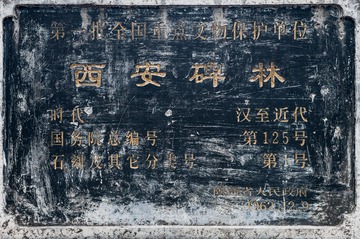 第一批全国重点文物保护单位
西安碑林
时代 汉至近代
国务院总编号 第125号
石刻及其它分类号 第1号
陕西省人民政府